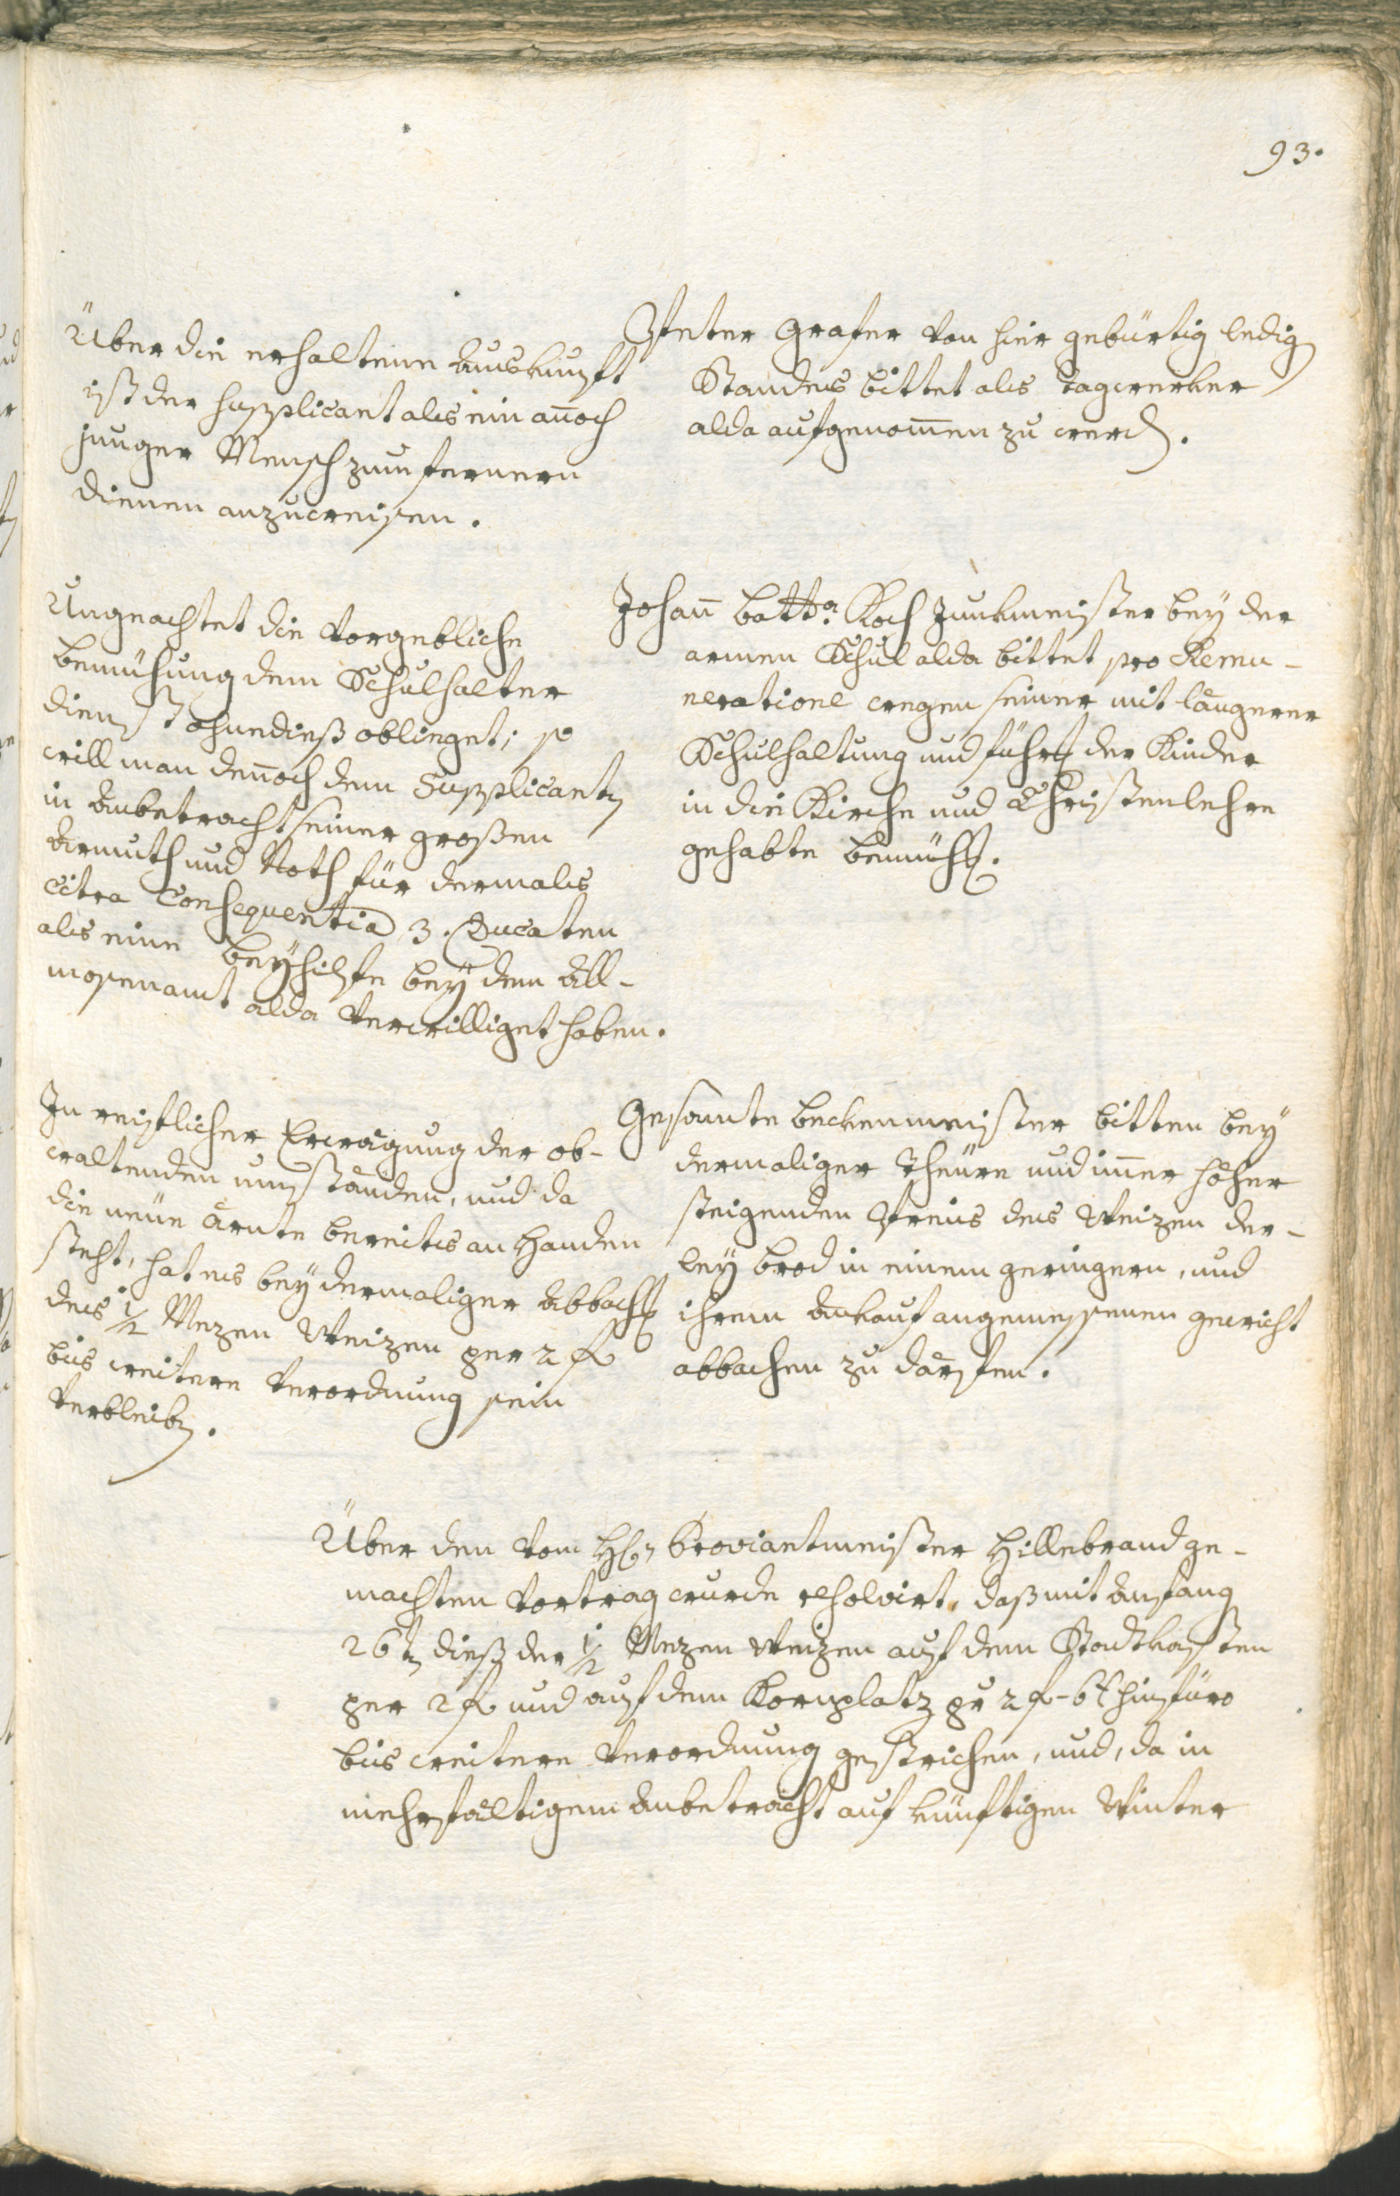 93.
Peter Grafer von hier gebürtig ledig
Standes bittet als Tagwerker
alda aufgenom̄en zu werden.
Über die erhaltene Auskunft
ist der Supplicant als ein an̄och
junger Mensch zum fernern
dienen anzuweisen.
Johan̄ Batta Koch Junkmeister bey der
armen Schul alda bittet pro Remu-
neratione wegen seiner mit längerer
Schulhaltung und führung der Kinder
in die Kirche und Christenlehre
gehabte bemühung.
Ungeachtet die vorgebliche
bemühung dem Schulhalter
dienst ohnedieß oblieget; so
will man den̄och dem Supplicanten
in Anbetracht seiner großen
Armuth und Noth für dermals
citra Consequentia 3. Ducaten
als eine beyhilfe bey dem All-
mosenamt alda verwilliget haben.
Gesamte beckenmeister bitten bey
dermaliger Theüre und im̄er höher
steigenden Preis des Weizen der-
ley brod in einem geringern, und
ihrem Ankauf angemessenen gewicht
abbachen zu därffen.
In reiflicher Erwägung der ob-
waltenden umständen, und da
die neüe Ärnte bereits an Handen
steht, hat es bey dermaliger Abbachung
des 1/2 Mezen Weizen per 2 f
bis weitere Verordnung sein
verbleiben.
Über den vom Hrn Proviantmeister Hillebrand ge-
machten Vortrag wurde resolvirt, daß mit Anfang
26ten dieß der 1/2 Mezen Weizen auf dem Stadtkasten
per 2 f und auf dem Kornplatz pr 2 f - 6 t hinfüro
bis weitere Verordnung gestrichen, und, da in
mehrfältigem Anbetracht auf künftigen Winter